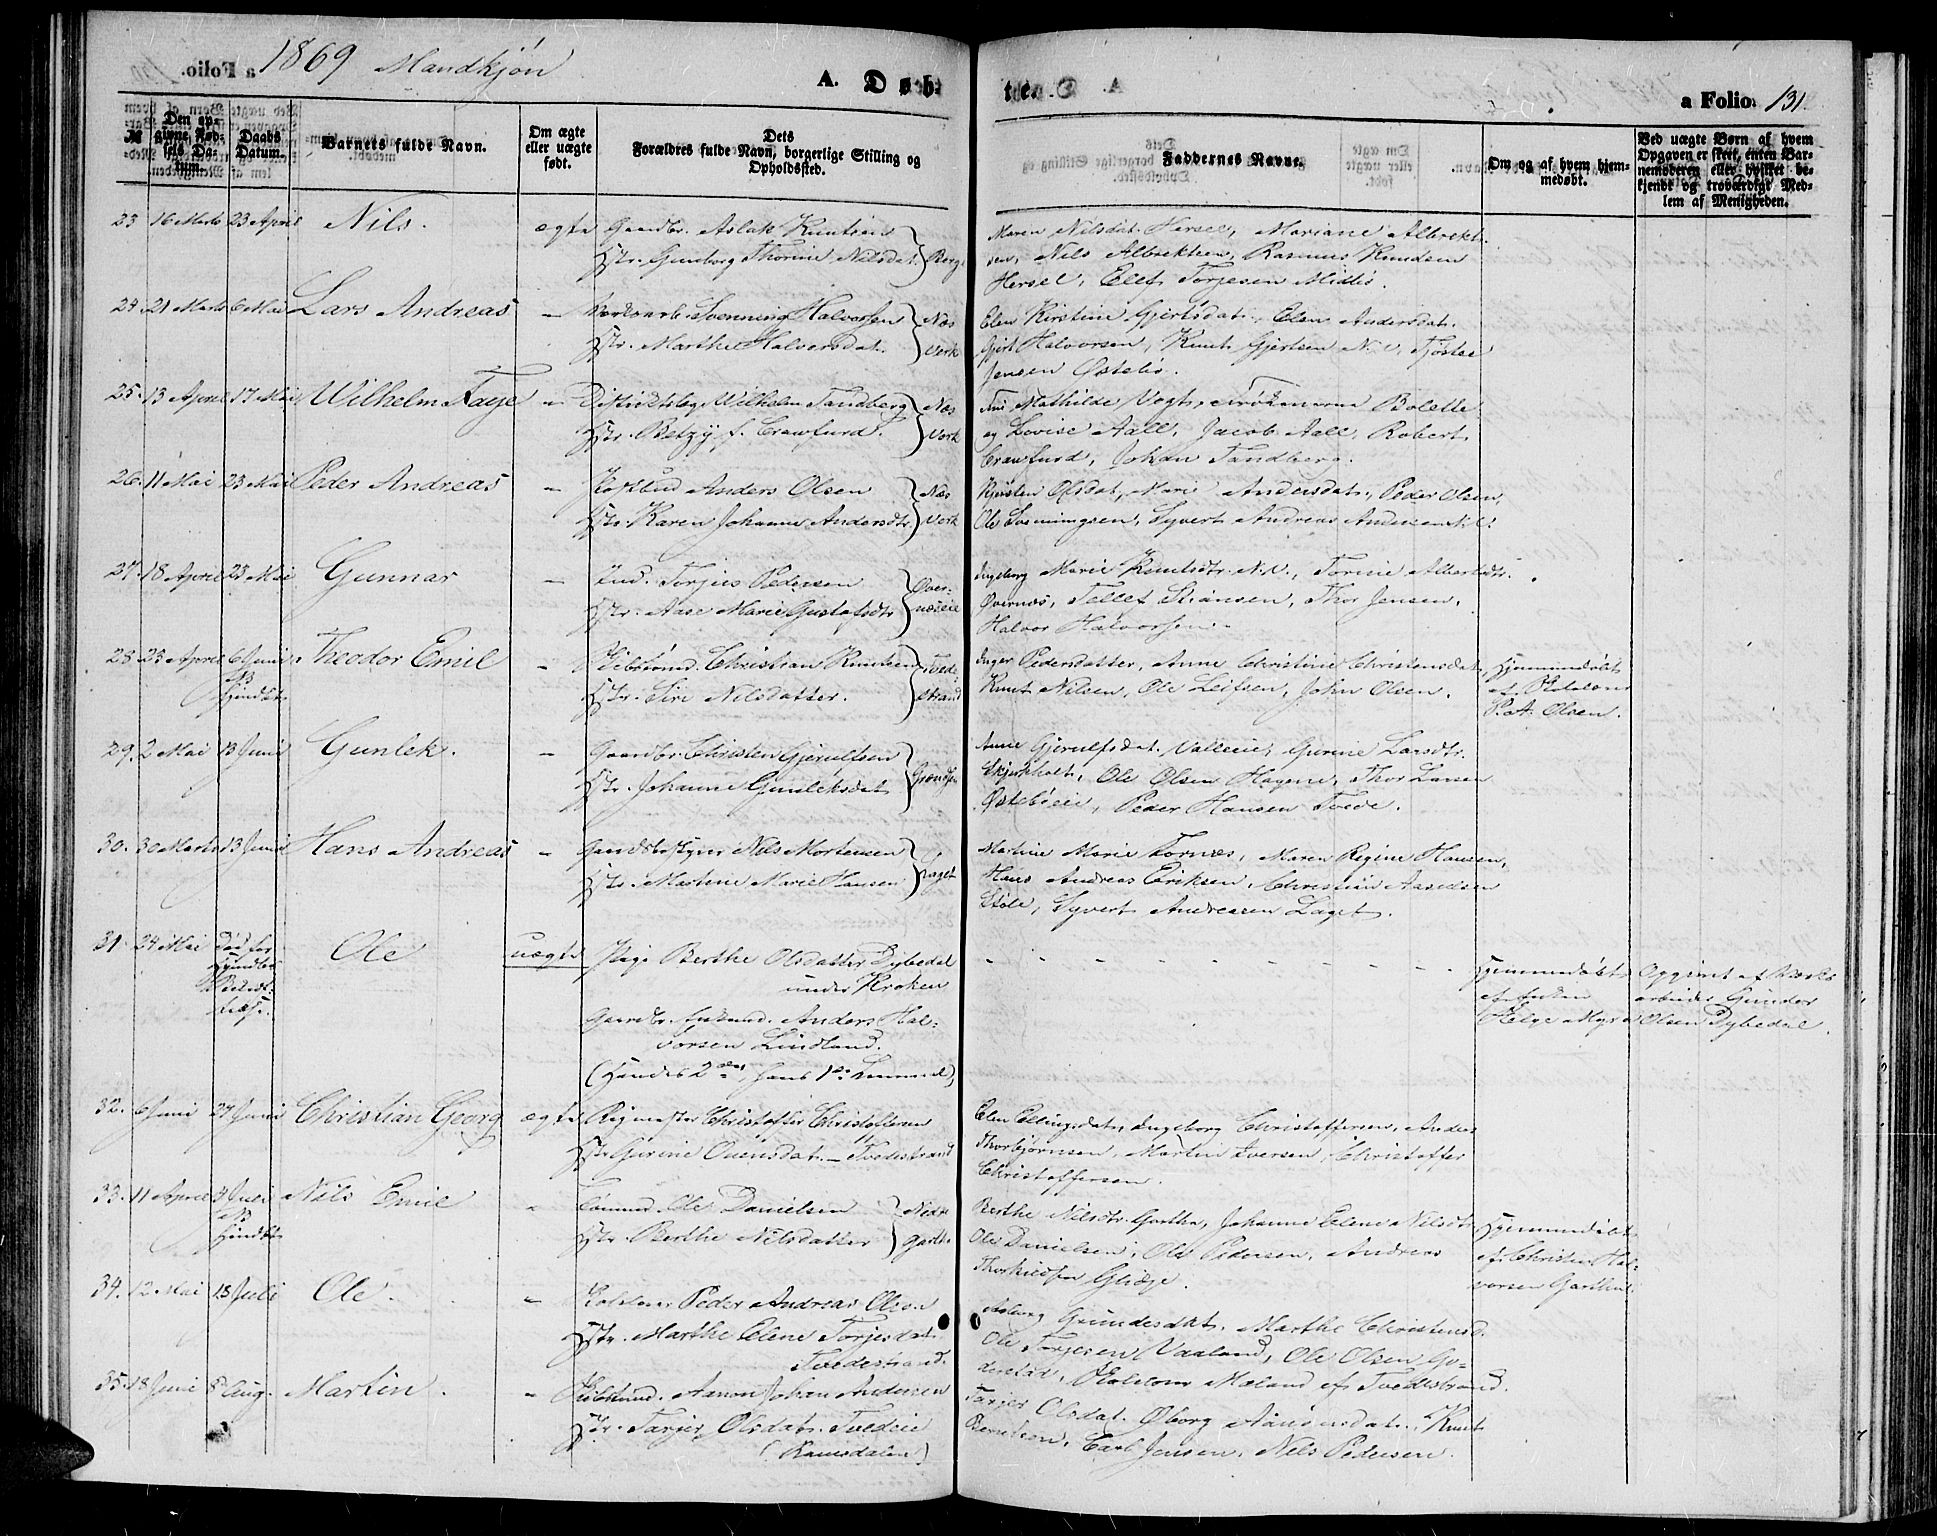 a Folio.
1869 Mandkjøn
A. Døb
te.
a Folio. 131
№
Den op-
givne Fød-
sels Da-
tum.
Daabs
Datum.
Barnets fulde Navn.
Om ægte
eller uægte
født.
Dets
Forældres fulde Navn, borgerlige Stilling og
Opholdssted.
Faddernes Navne.
Om og af hvem hjem-
medøbt.
Ved uægte Børn af hvem
Opgaven er skeet, enten Bar-
nemoderen eller hvilket be-
kjendt og troværdigt Med-
lem af Menigheden.
23 16 Marts 23 April Nils. ægte Gaardbr. Aslak Knutsen
Hstr. Gunborg Thorine Nilsdat. Berge
Maren Nilsdat. Hersel, Mariane Albrekt-
sen, Nils Albrektsen, Rasmus Knudsen
Hersel, Elet Torjesen Midbø.
24. 21 Marts 6 Mai Lars Andreas - Værksarb. Svenning Halvorsen
Hstr. Marthe Halvorsdat. Næs Værk
Elen Kirstine Gjertsdat., Elen Andersdat.
Gjert Halvorsen, Knut Gjertsen N. V. Tjøstel
Jensen Østebø.
25. 13 April 17 Mai Wilhelm Faye - Distriktslæg Wilhelm Tandberg
Hstr. Betzy f. Crawfurd. Næs Værk
Mathilde Vogt, Frøknerne Bolette
og Lovise Aall, Jacob Aall, Robert
Crawfurd, Johan Tandberg.
26. 11 Mai 23 Mai Peder Andreas - Postbud Anders Olsen
Hstr. Karen Johanne Andersdtr. Næs Værk
Kjersten Olsdat, Marie Andersdat, Peder Olsen,
Ole Svenningsen, Syvert Andreas Andersen
27. 18 April 23 Mai Gunnar - Ind. Torjus Pedersen
Hstr. Aase Marie Gustafsdtr Øver-
næseie
Ingeborg Marie Knutsdtr. N. V., Torine Albertsdtr.
Øvernæs, Tellef Stiansen, Thor Jensen,
Halvor Halvorsen.
28. 23 April 6 Juni Theodor Emil - Skibstømd. Christian Knutsen
NB
Hjmdbt.
Hstr. Siri Nilsdatter. Tvede-
strand
Inger Pedersdatter, Anne Christine Christensdat,
Knut Nilsen, Ole Leifsen, John Olsen.
Hjemmedøbt
af
P.A. Olsen.
29. 2 Mai 13 Juni Gunlek. - Gaardbr. Christen Gjerulfsen
Hstr. Johanne Gunleksdat
Anne Gjerulfsdat. Valleeie, Gurine Larsdtr.
Skjerkholt, Ole Olsen Hagene, Thor Larsen
Østebøeie, Peder Hansen Tvede.
30. 30 Marts 13 Juni Hans Andreas - Gaardbestyrer Nils Mortensen
Hstr. Martine Marie Hansen Laget
Martine Marie Tornæs, Maren Regine Hansen,
Hans Andreas Eriksen, Christian Aasedsen
Støle, Syvert Andreasen Laget.
31. 24 Mai Død før
Ole uægte Pige Berthe Olsdatter Dybedal
under Kroken
Gaardbr. Anders Hal-
vorsen Lindland.
(Hendes 2det, hans 1ste Leiermaal)
Hjemmedøbt
af
Helge Myra
Opgivet af Værks
arbeider Gundor
Olsen Dybedal.
32. 6 Juni 27 Juni Christian Georg ægte Rigmester Christoffer Christoffersen
Hstr. Gurine Ouensdat. - Tvedestrand
Elen Ellingsdat, Ingeborg Christoffersen, Anders
Thorbjørnsen, Martin Iversen, Christoffer
Christoffersen.
33. 11 April 4 Juli Nils Emil - Tømmd. Ole Danielsen
NB
Hjmdbt.
Hstr. Berthe Nilsdatter Nedre
Garth.
Berthe Nilsdtr. Gartha, Johanne Elene Nilsdtr
Ole Danielsen, Ole Pedersen, Andreas
Thorkildsen Glidje.
Hjemmedøbt
af Christen Hal-
vorsen Garthe
34. 12 Mai 18 Juli Ole. - Peder Andreas Olsen
Hstr. Marthe Elene Torjesdat.
Tvedestrand.
Asborg Gundersdat. Marthe Christensd.
Ole Torjesen Vaaland, Ole Olsen Go-
derstad, Mæland af Tvedestrand.
35. 18 Juni 8 Aug. Martin. - Skibstmd. Aanon Johan Andersen
Hstr. Tarjer Olsdat. Tvedeie
(Ramsdalen)
Tarjer Olsdat. Øborg Aanonsdat. Knut
Berntsen, Carl Jensen, Nils Pedersen.